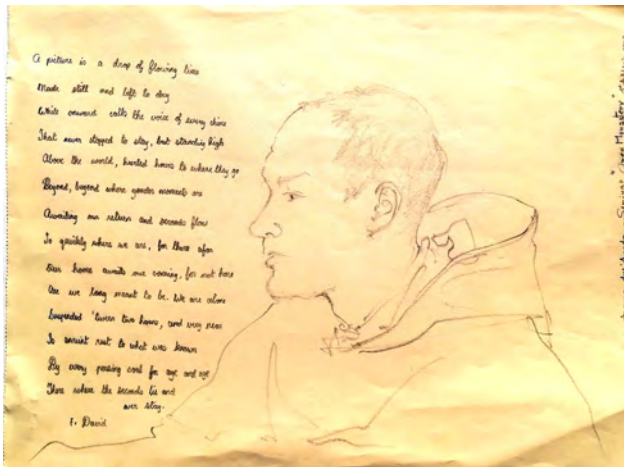 A picture is a drop of flowing time
Made still and left to dry
While onward calls the voice of every chime
That never stopped to stay, but standing high
Above the world, hurried hours to where they go
Beyond, beyond where yonder moments are
Awaiting our return and seconds flow
So quickly where we are, for there afar
Our home awaits our coming, for not here
Are we long meant to be. We are alone
Suspended 'tween two hours, and very near
To ancient rest to what was known
By every passing soul for age and age
There where the seconds lie and
ever stay.
Fr David
Monastery